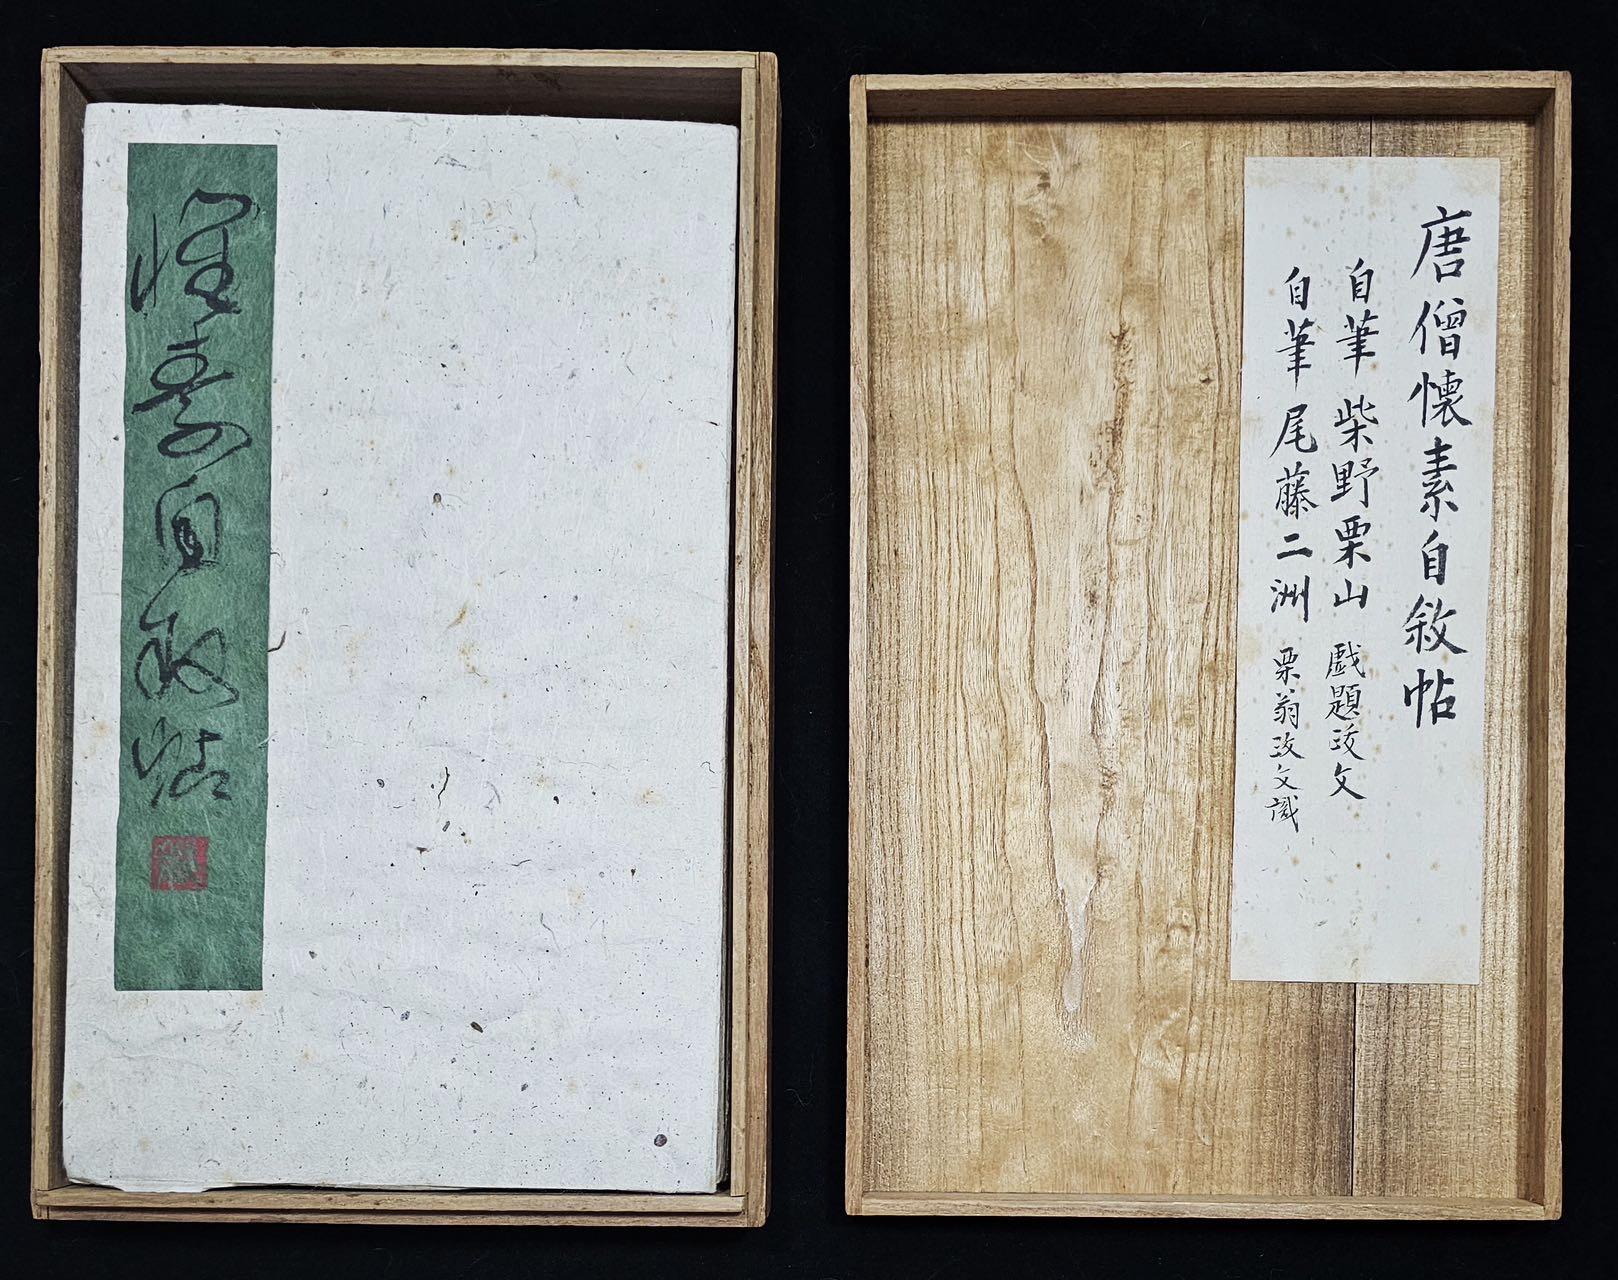 懐素自叙帖
唐僧懐素自敘帖
自筆 柴野栗山 戯題跋文
自筆 尾藤二洲 栗翁跋文識